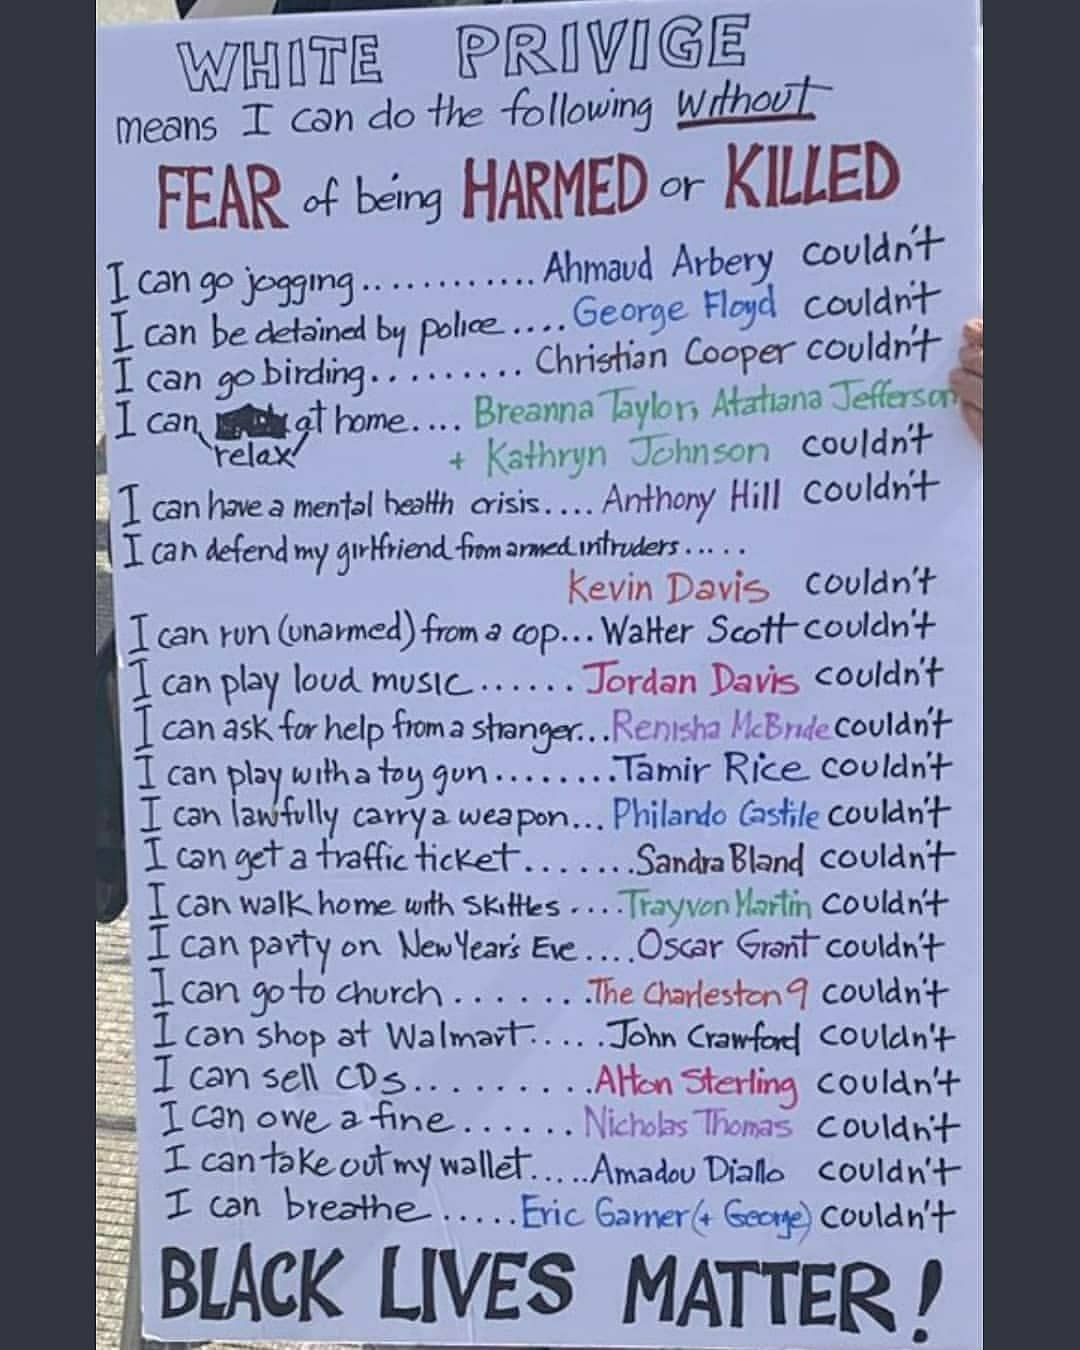 WHITE PRIVIGE
means I can do the following without
FEAR of being HARMED or KILLED
I can go jogging............ Ahmaud Arbery couldn't
I can be detained by police .... George Floyd couldn't
I can go birding.......... Christian Cooper couldn't
I can at home.... Breanna Taylor, Atatiana Jefferson
relax + Kathryn Johnson couldn't
I can have a mental health crisis.... Anthony Hill couldn't
I can defend my girlfriend from armed intruders .....
Kevin Davis couldn't
I can run (unarmed) from a cop... Walter Scott couldn't
I can play loud music ...... Jordan Davis couldn't
I can ask for help from a stranger... Renisha McBride couldn't
I can play with a toy gun ........ Tamir Rice couldn't
I can lawfully carry a weapon... Philando Castile couldn't
I can get a traffic ticket ....... Sandra Bland couldn't
I can walk home with Skittles .... Trayvon Martin couldn't
I can party on New Year's Eve .... Oscar Grant couldn't
I can go to church ....... The Charleston 9 couldn't
I can shop at Walmart..... John Crawford couldn't
I can sell CDs.......... Alton Sterling couldn't
I can owe a fine...... Nicholas Thomas couldn't
I can take out my wallet..... Amadou Diallo couldn't
I can breathe ..... Eric Garner (+ George) couldn't
BLACK LIVES MATTER!